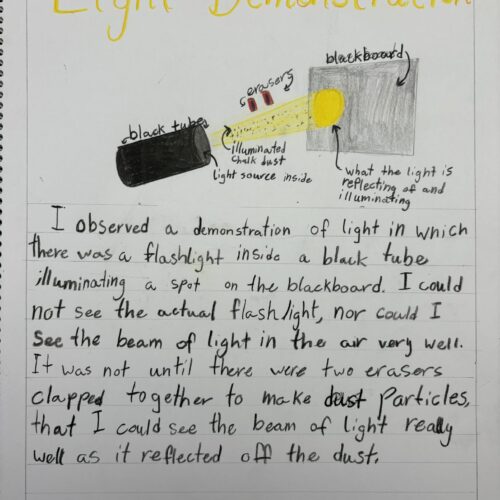 Light Demonstration
blackboard
erasers
black tube
illuminated
chalk dust
light source inside
what the light is
reflecting of and
illuminating
I observed a demonstration of light in which
there was a flashlight inside a black tube
illuminating a spot on the blackboard. I could
not see the actual flashlight, nor could I
see the beam of light in the air very well.
It was not until there were two erasers
clapped together to make dust particles,
that I could see the beam of light really
well as it reflected off the dust.